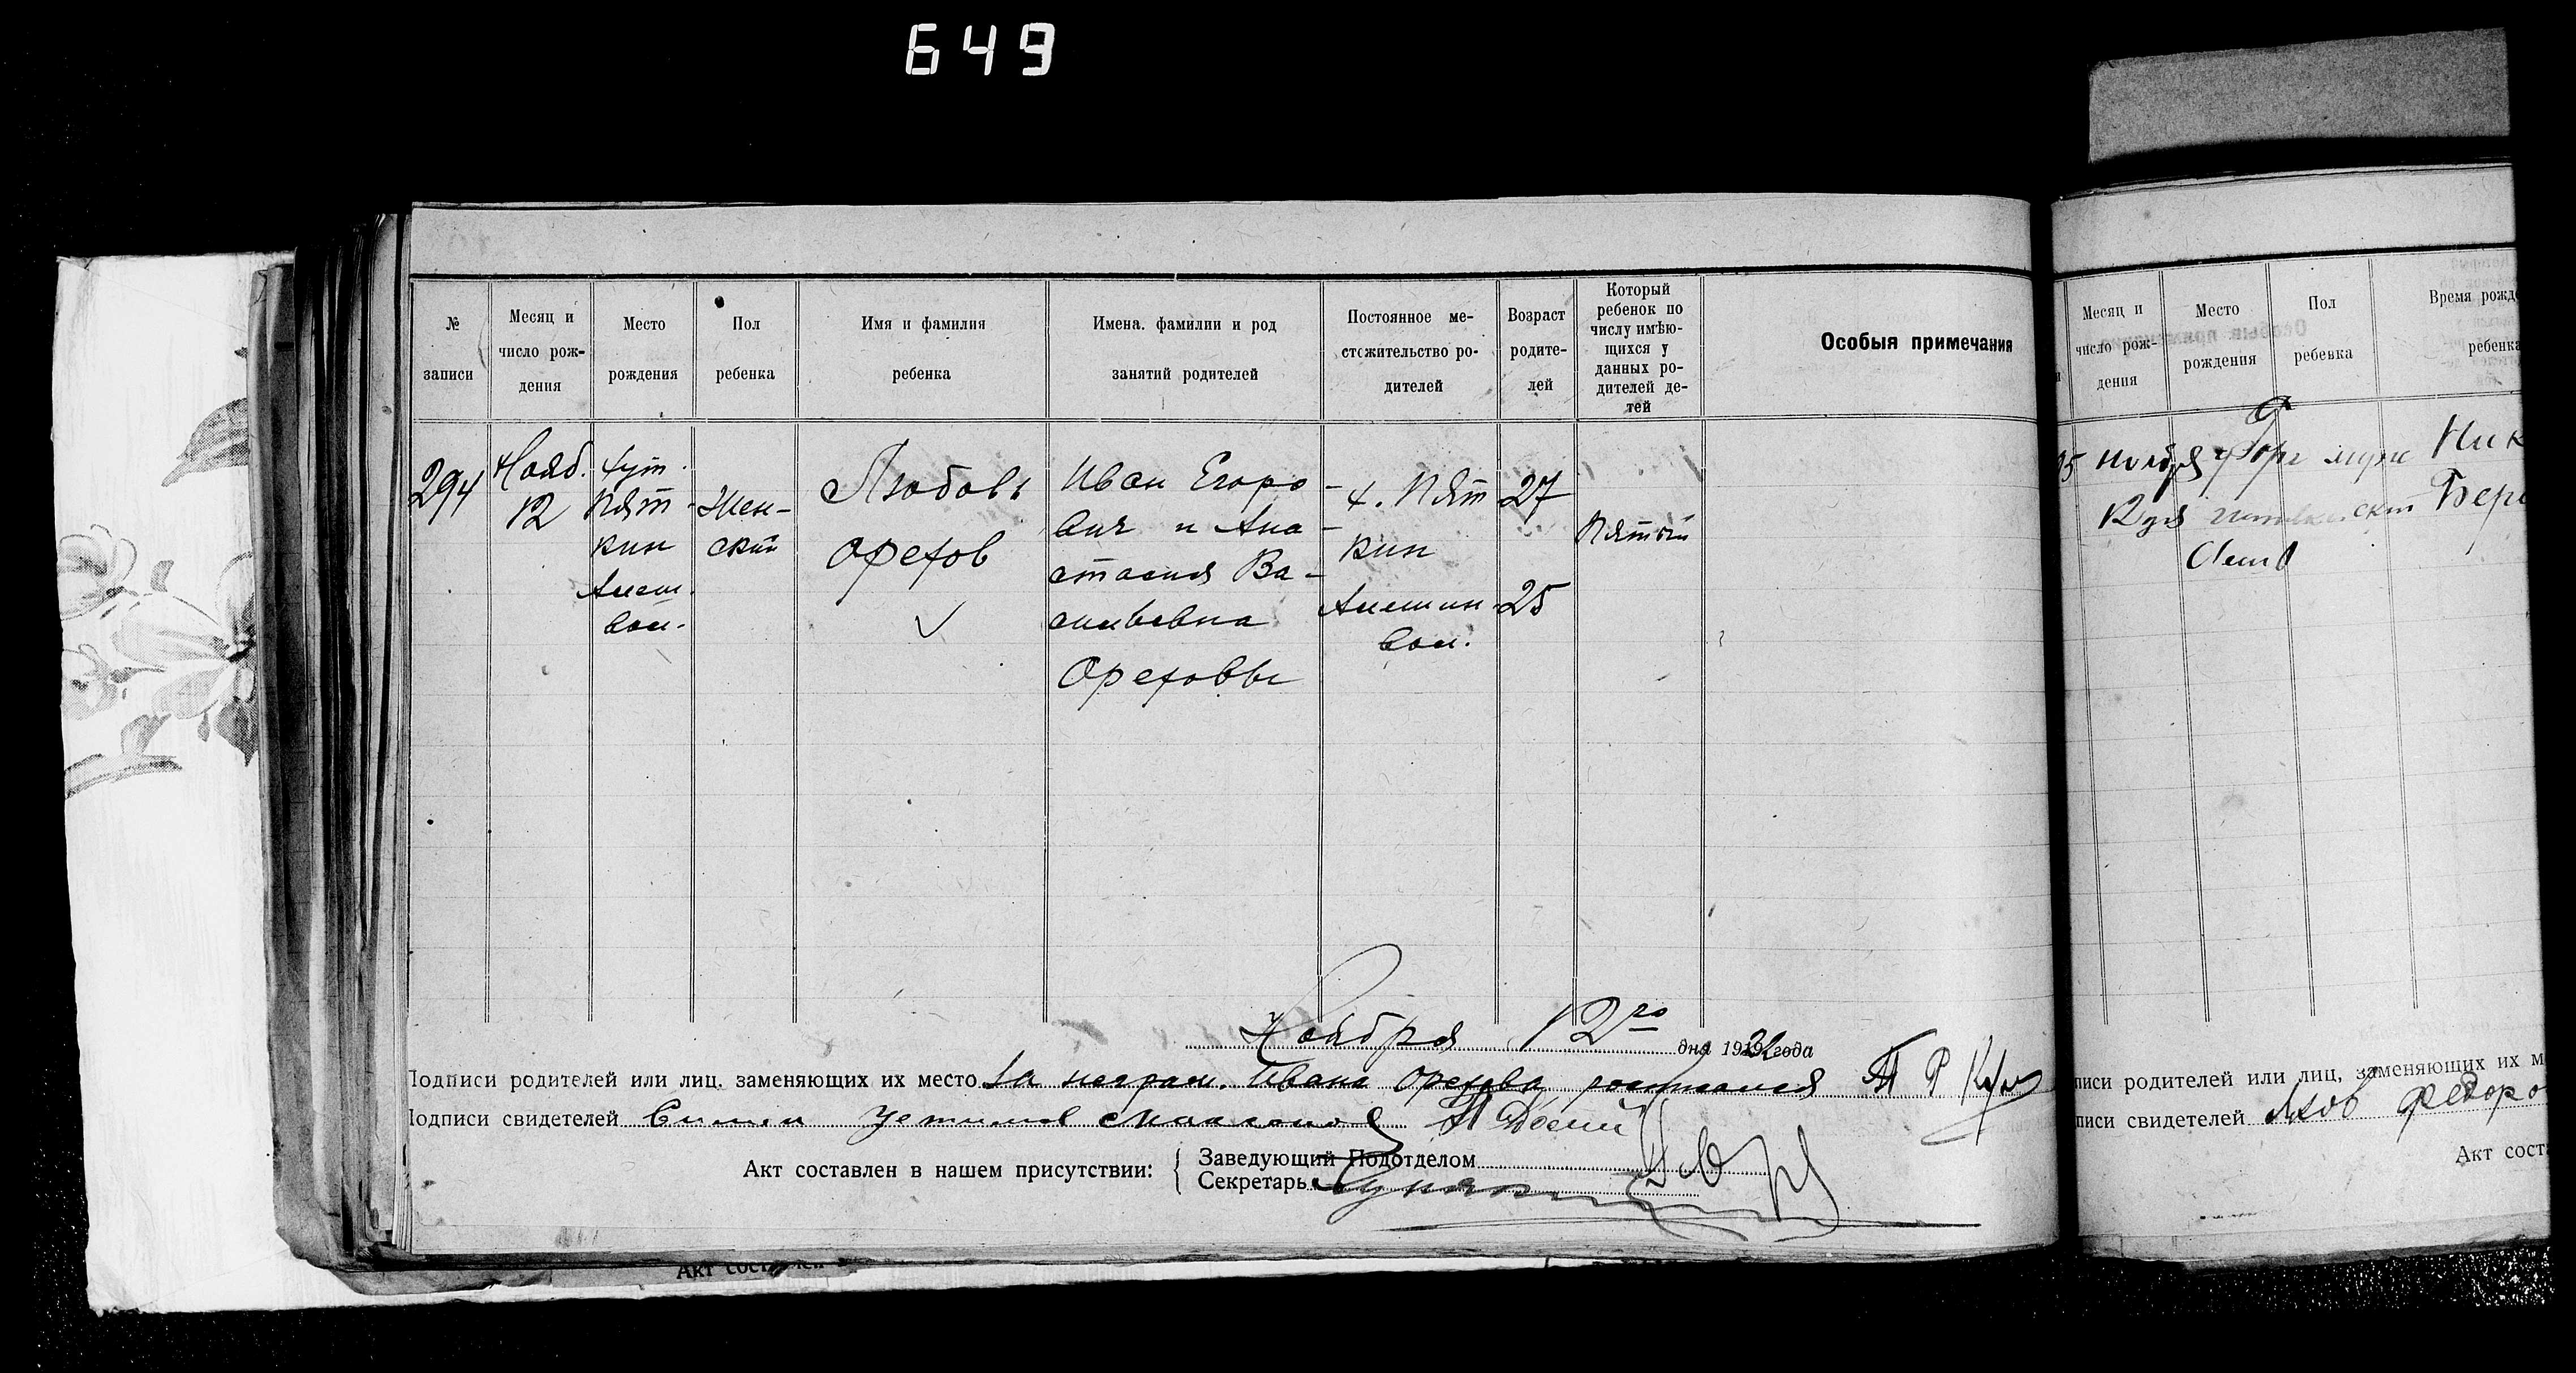 649
№ записи
Месяц и число рождения
Место рождения
Пол ребенка
Имя и фамилия ребенка
Имена. фамилии и род занятий родителей
Постоянное местожительство родителей
Возраст родителей
Который ребенок по числу имѣющихся у данных родителей детей
Особыя примечания
294
Нояб.
12
хут.
Пят-
кин
Алеш.
вол.
Жен-
ский
Любовь
Орехов
Иван Егоро-
вич и Ана-
стасия Ва-
сильевна
Ореховы
х. Пят
кин
Алешин
вол.
27
25
Пятый
Ноября 12го дня 19 года
Подписи родителей или лиц. заменяющих их место За неграм. Ивана Орехова росписался
Подписи свидетелей
Акт составлен в нашем присутствии:
Заведующий Подотделом
Секретарь
Акт составлен
Месяц и число рождения
Место рождения
Пол ребенка
Время рожд
ребенка
95
Ноября
12 дня
муж
ский
Ник
писи родителей или лиц, заменяющих их м
писи свидетелей Яков Федоро
Акт сост